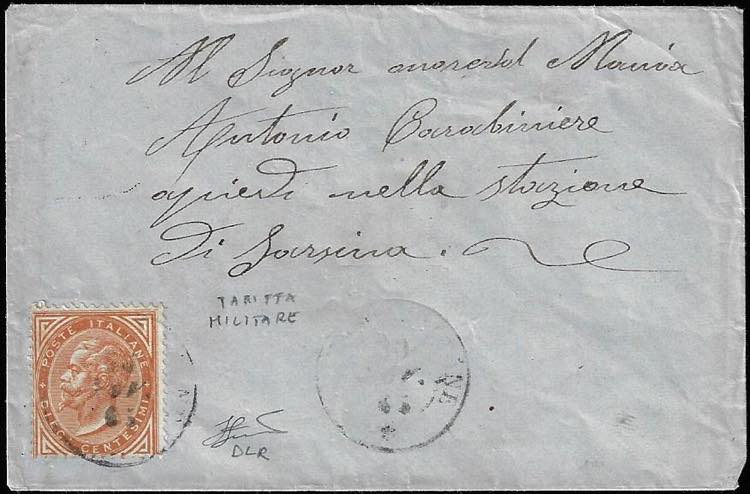 Al Signor
Antonio Carabiniere
apiedi nella stazione
di Sarsina.
TARIFFA
MILITARE
POSTE ITALIANE
DIECI CENTESIMI
DLR